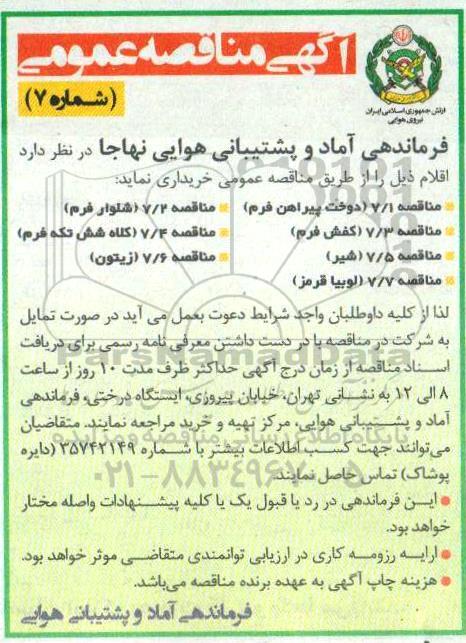 آگهی مناقصه عمومی
ارتش جمهوری اسلامی ایران
نیروی هوایی
(شماره ۷)
فرماندهی آماد و پشتیبانی هوایی نهاجا در نظر دارد
اقلام ذیل را از طریق مناقصه عمومی خریداری نماید:
مناقصه ۷/۱ (دوخت پیراهن فرم) مناقصه ۷/۲ (شلوار فرم)
مناقصه ۷/۳ (کفش فرم) مناقصه ۷/۴ (کلاه شش تکه فرم)
مناقصه ۷/۵ (شیر) مناقصه ۷/۶ (زیتون)
مناقصه ۷/۷ (لوبیا قرمز)
لذا از کلیه داوطلبان واجد شرایط دعوت بعمل می آید در صورت تمایل
به شرکت در مناقصه با در دست داشتن معرفی نامه رسمی برای دریافت
اسناد مناقصه از زمان درج آگهی حداکثر ظرف مدت ۱۰ روز از ساعت
۸ الی ۱۲ به نشانی تهران، خیابان پیروزی، ایستگاه درختی، فرماندهی
آماد و پشتیبانی هوایی، مرکز تهیه و خرید مراجعه نمایند. متقاضیان
می‌توانند جهت کسب اطلاعات بیشتر با شماره ۳۵۷۴۲۱۴۹ (دایره
پوشاک) تماس حاصل نمایند.
این فرماندهی در رد یا قبول یک یا کلیه پیشنهادات واصله مختار
خواهد بود.
ارایه رزومه کاری در ارزیابی توانمندی متقاضی موثر خواهد بود.
هزینه چاپ آگهی به عهده برنده مناقصه می‌باشد.
فرماندهی آماد و پشتیبانی هوایی
ParsNamadData
۰۲۱-۸۸۳۴۹۶۷۰-۵